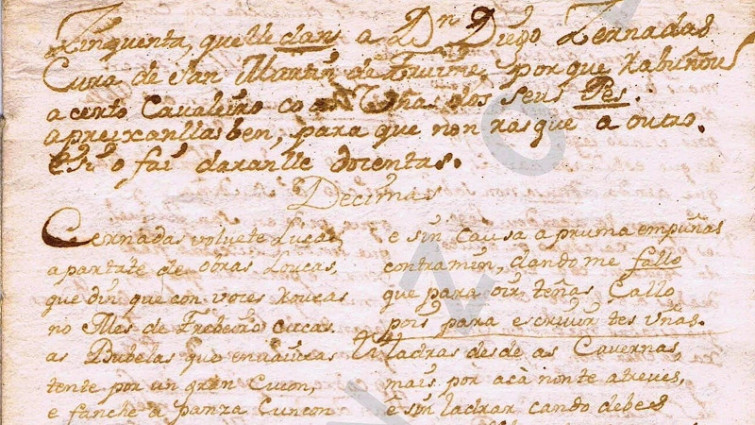 Zinquenta, quelle dan a Dn. Diego Zernadas
Cura de San Martin de Fruime, porque rabuñou
a certo Cavaleiro co as Uñas dos seus Pes.
apreixanllas ben, para que non rasque a outro.
e si o fai daranlle docentas.
Decimas
Cernadas volvete Lucas,
apartate de obras Loucas,
que din que con voces roucas
no Mes de Frebeiro cucas.
as Bubelas que
tente por un gran Cucon,
e fanche a panza
e sin causa a pruma empuñas
contra min, dandome fallo
que para oir teñas Callo
pois para escrivir tes uñas.
Ladras desde as Cavernas,
mais por acà non te atreves,
e sin ladrar cando debes